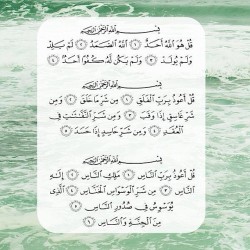 بِسْمِ اللَّهِ الرَّحْمَٰنِ الرَّحِيمِ
قُلْ هُوَ اللَّهُ أَحَدٌ ١ اللَّهُ الصَّمَدُ ٢ لَمْ يَلِدْ
وَلَمْ يُولَدْ ٣ وَلَمْ يَكُن لَّهُ كُفُوًا أَحَدٌ ٤
بِسْمِ اللَّهِ الرَّحْمَٰنِ الرَّحِيمِ
قُلْ أَعُوذُ بِرَبِّ الْفَلَقِ ١ مِن شَرِّ مَا خَلَقَ ٢ وَمِن
شَرِّ غَاسِقٍ إِذَا وَقَبَ ٣ وَمِن شَرِّ النَّفَّٰثَٰتِ فِي
الْعُقَدِ ٤ وَمِن شَرِّ حَاسِدٍ إِذَا حَسَدَ ٥
بِسْمِ اللَّهِ الرَّحْمَٰنِ الرَّحِيمِ
قُلْ أَعُوذُ بِرَبِّ النَّاسِ ١ مَلِكِ النَّاسِ ٢ إِلَٰهِ
النَّاسِ ٣ مِن شَرِّ الْوَسْوَاسِ الْخَنَّاسِ ٤ الَّذِي
يُوَسْوِسُ فِي صُدُورِ النَّاسِ ٥
مِنَ الْجِنَّةِ وَالنَّاسِ ٦